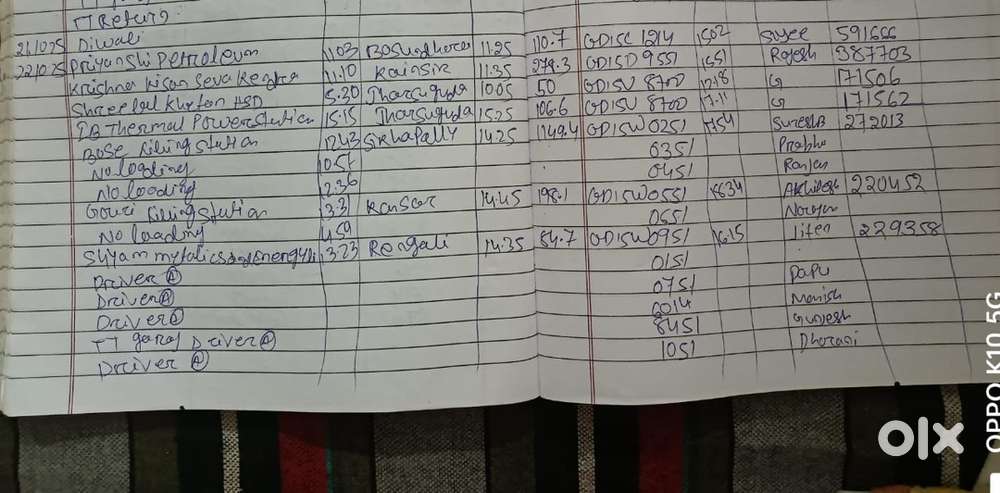 TT Return
21.10.25 Diwali
22.10.25 Priyanshi Petroleum 11.03 11.25 110.7 OD15C 1214 1502 591666
Krishna Kisan Seva Kendra 11.10 Kainsir 11.35 279.3 OD15D 9551 1551 Rajesh 387703
Shreelal Khetan HSD 5.30 Jharsuguda 10.05 50 OD15U 8700 12.18 G 171506
IB Thermal Power Station 15.15 Jharsuguda 15.25 106.6 OD15U 8700 17.11 G 171562
Bose Filling Station 12.43 14.25 1149.4 OD15W0251 1754 SureshB 272013
No loading 10.51 0351 Prabhu
No loading 12.36 0451 Ranjan
Gouri Filling Station 13.31 Kansar 14.45 198.1 OD15W0551 1634 Akhilesh 220452
No loading 0551 Narayan
Shyam metalics and Energy 13.23 Rengali 14.35 84.7 OD15W0951 1615 Jiten 229358
Driver Ⓐ 0151
Driver Ⓐ 0751 Papu
Driver Ⓐ 6014 Manish
TT garaj Driver Ⓐ 8451
Driver Ⓐ 1051 Dharani
olx
OPPO K10 5G